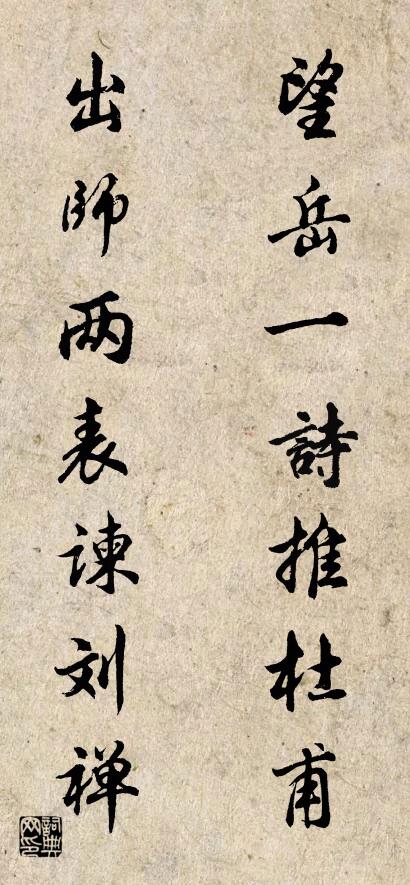 望岳一詩推杜甫
出師两表諫刘禅